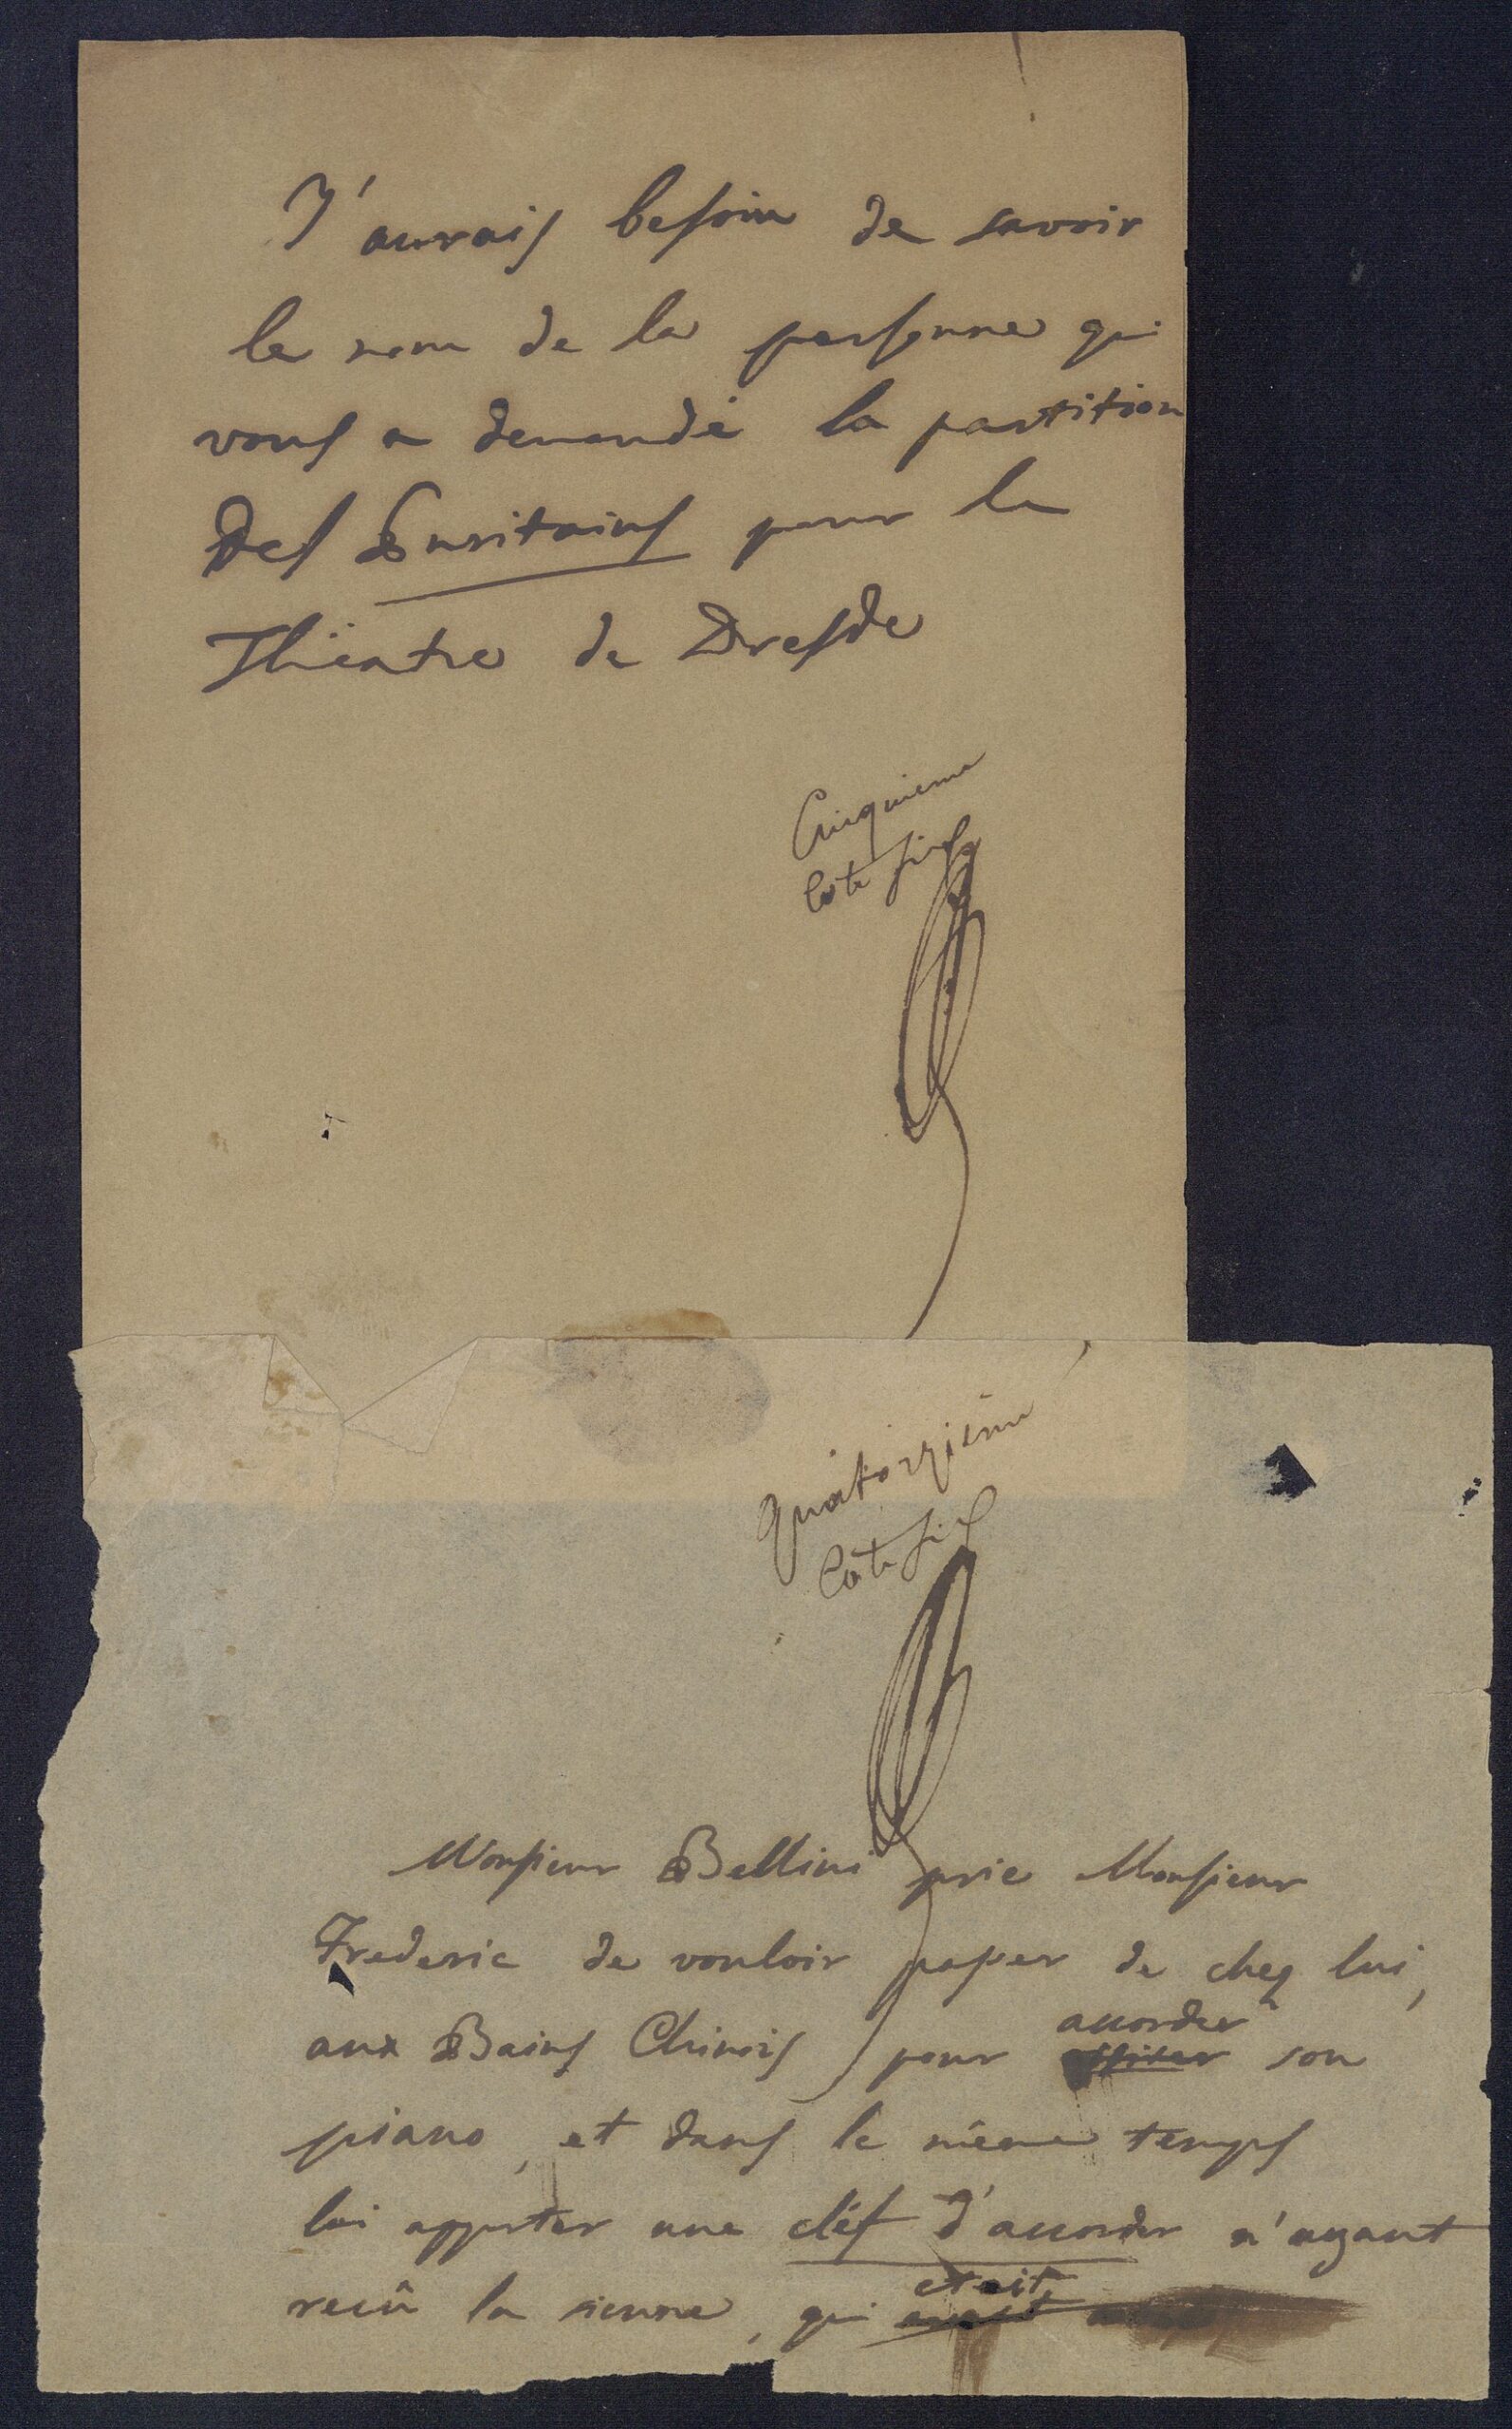 J'aurais besoin de savoir
le nom de la personne qui
vous a demandé la partition
des Puritains pour le
Théatre de Dresde
Cinquieme
Cote
Quatorzieme
Cote
Monsieur Bellini prie Monsieur
Frederic de vouloir passer de chez lui,
aux Bains Chinois pour
accorder
son
piano, et dans le même temps
lui apporter une cléf d'accorder n'ayant
reçû la sienne, qui
etait